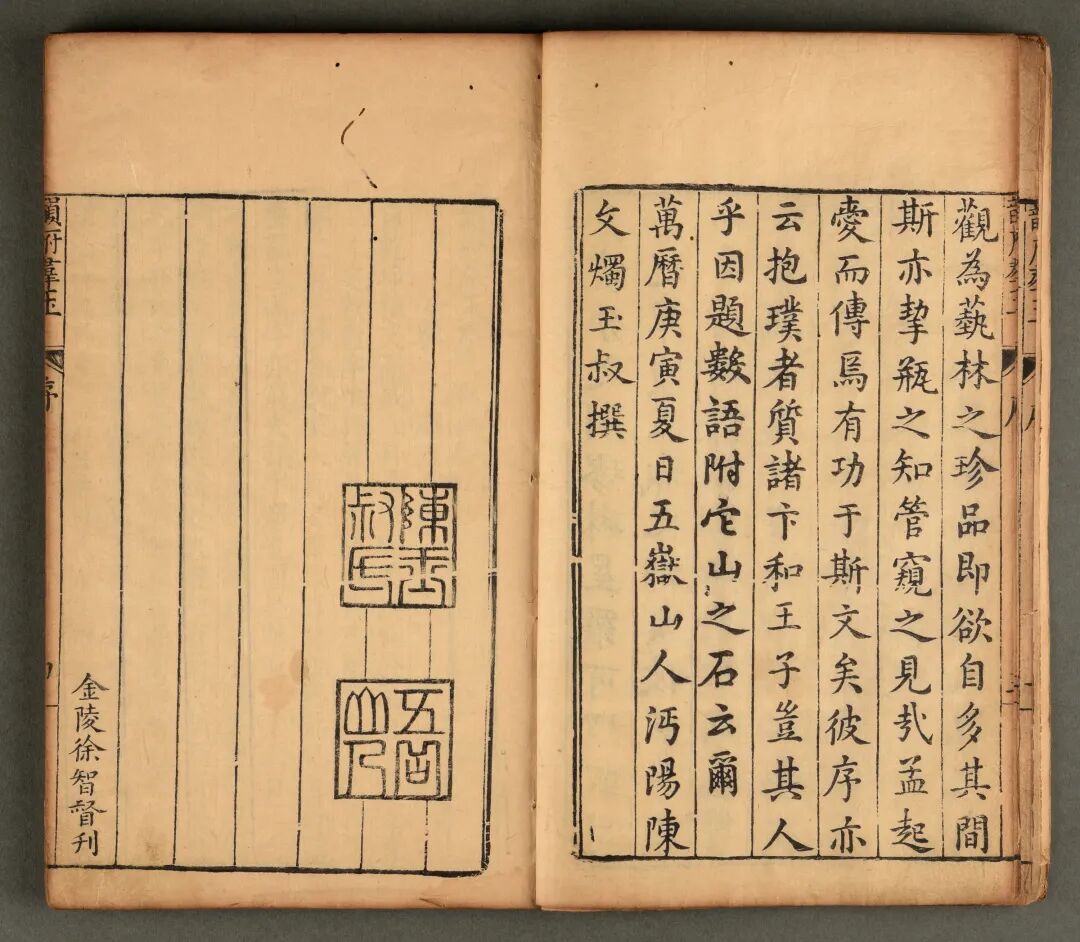 觀為藝林之珍品即欲自多其間
斯亦挈瓶之知管窺之見哉孟起
愛而傳焉有功于斯文矣彼序亦
云抱璞者質諸卞和王子豈其人
乎因題數語附它山之石云爾
萬曆庚寅夏日五嶽山人沔陽陳
文燭玉叔撰
陳玉叔氏
五岳山人
金陵徐智督刊
韻府羣玉
序